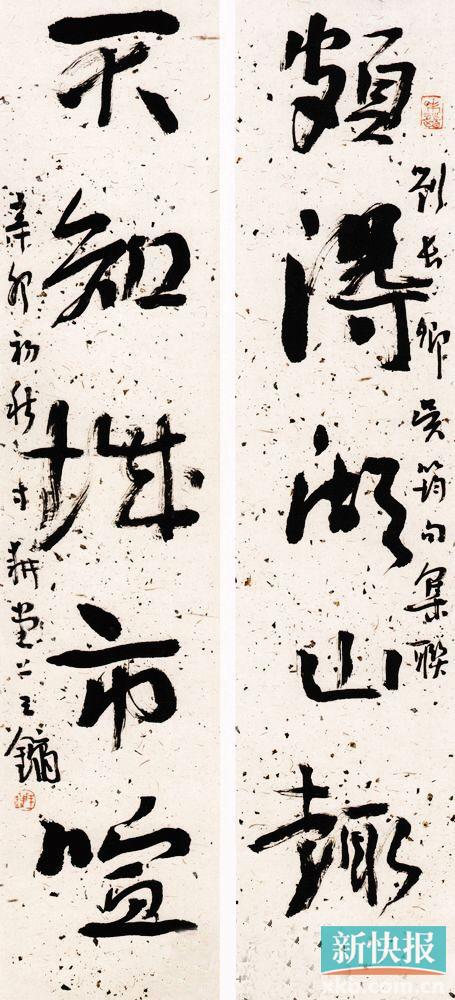 劉長卿吳筠句集聯
頗得湖山趣
不知城市喧
辛卯初秋寸耕堂上王鏞
新快报
xkb.com.cn